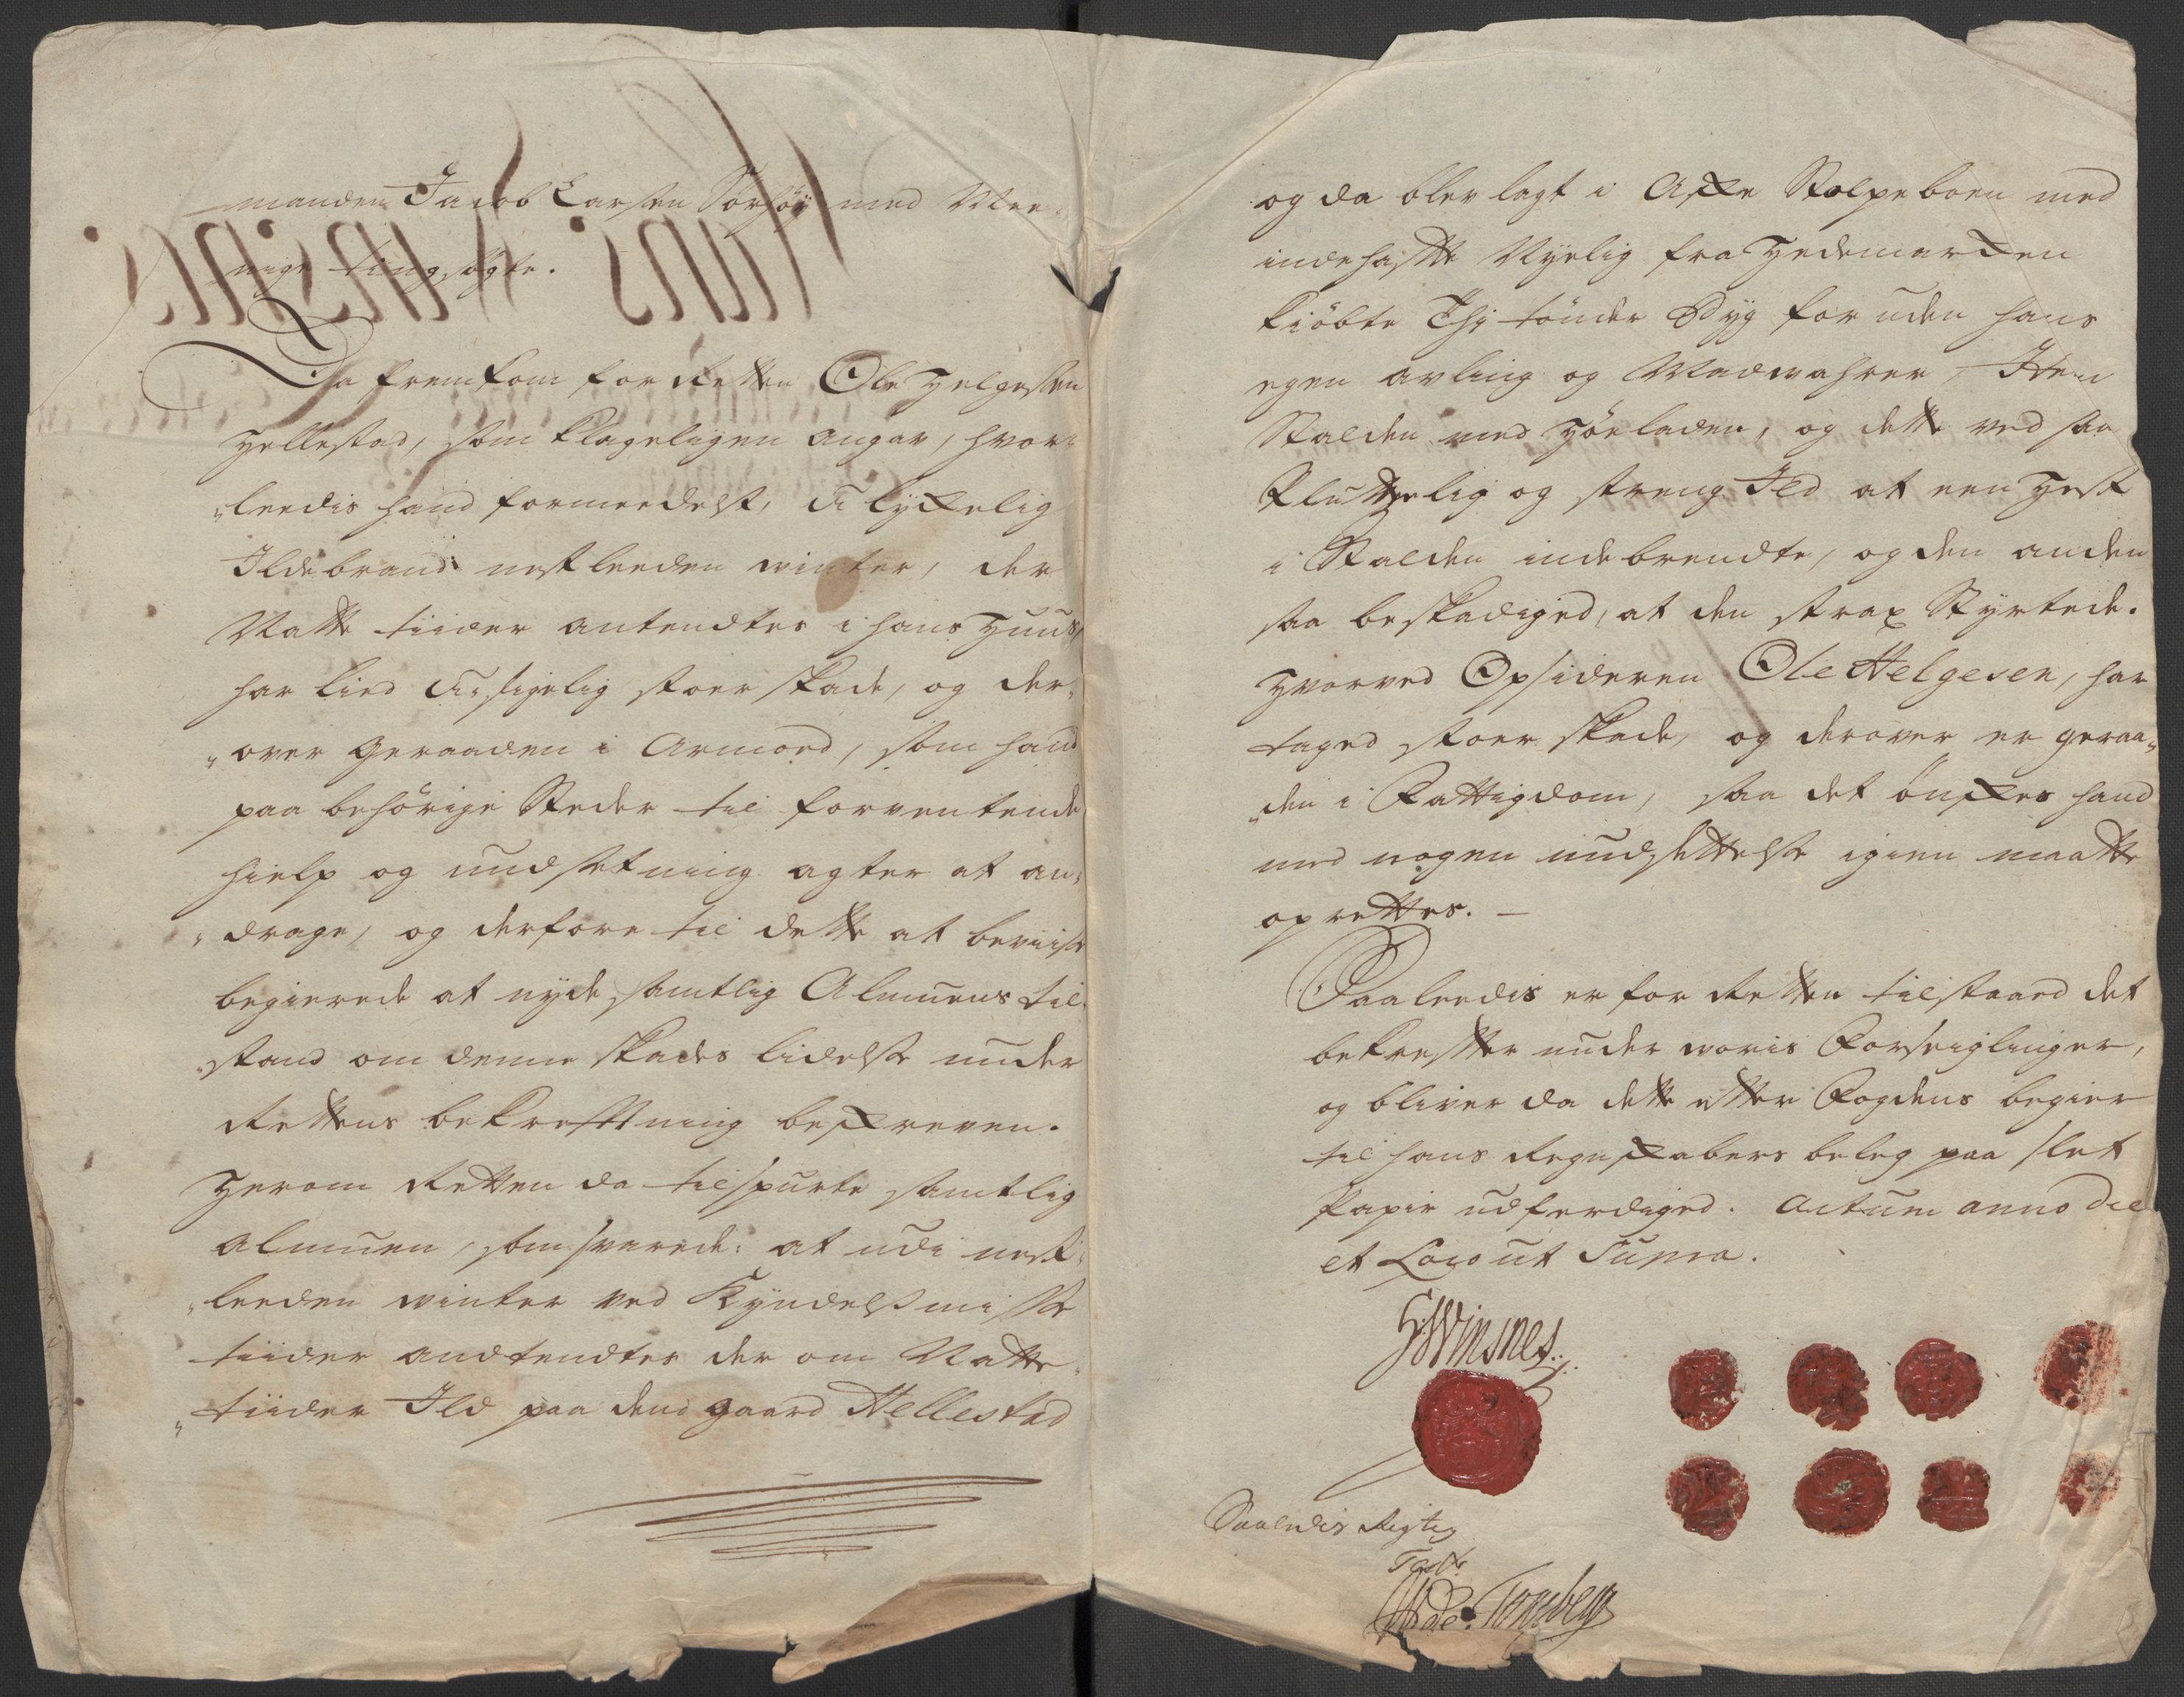 manden Jacob Larsen Sørhøy med Mee-
nige tingsøgte.
Da fremkom for Retten Ole Helgesen
Hellestad, som klageligen angav, hvor-
„leedis hand formeedelst, ulykkelig
Ildebrand nestleeden winter, der
Natte tiider antendtes i hans Huus,
har lied u-sigelig stoer skade, og der-
„over geraaden i Armoed, som hand
paa behørige Steder til forventende
hielp og undsetning agter at an-
„drage, og derfore til dette at beviise
begierede at nyde samtlig Almuens til-
„stand om denne skades lidelse under
Rettens bekrefftning beskreven.
Herom Retten da tilspurte samtlig
almuen, som svarede: at udi nest-
„leeden winter ved Kyndelsmisse
tiider andtendtes der om Natte-
„tiider Ild paa dend gaard Hellestad
og da blev lagt i Aske Stolpeboen med
indehafte Nyelig fra Hedemarken
kiøbte Thj tønder Byg for uden hans
egen avling og Madwahrer, Item
Stalden med Høeladen, og dette ved saa
Pluttselig og streng Ild at een Hest
i Stalden indebrendte, og den anden
saa beskadiged, at den strax Styrtede.
Hvorved Opsideren Ole Helgesen, har
taged stoer skade, og derover er geraa-
„den i Fattigdom, saa det ønskes hand
med nogen undsettelse igien maatte
oprettes. –
Saaleedis er for Retten tilstaaed det
bekrefter under woris Forseiglinger,
og bliver da dette efter Fogdens begier
til hans Regnskabers beleg paa slet
Papir udferdiged. Actum anno die
et Loco ut Supra.
HWinsnes
Saaledis Rigtig
Test.
And: Tonsberg